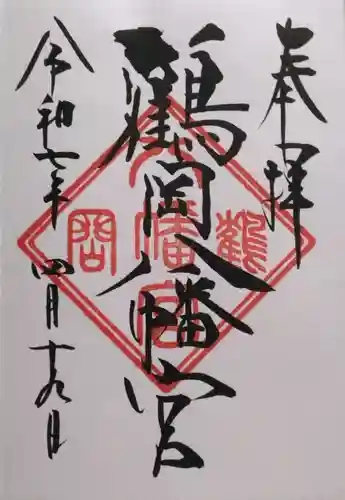 奉拝
鶴岡八幡宮
令和七年四月十九日
鶴
八幡宮
岡